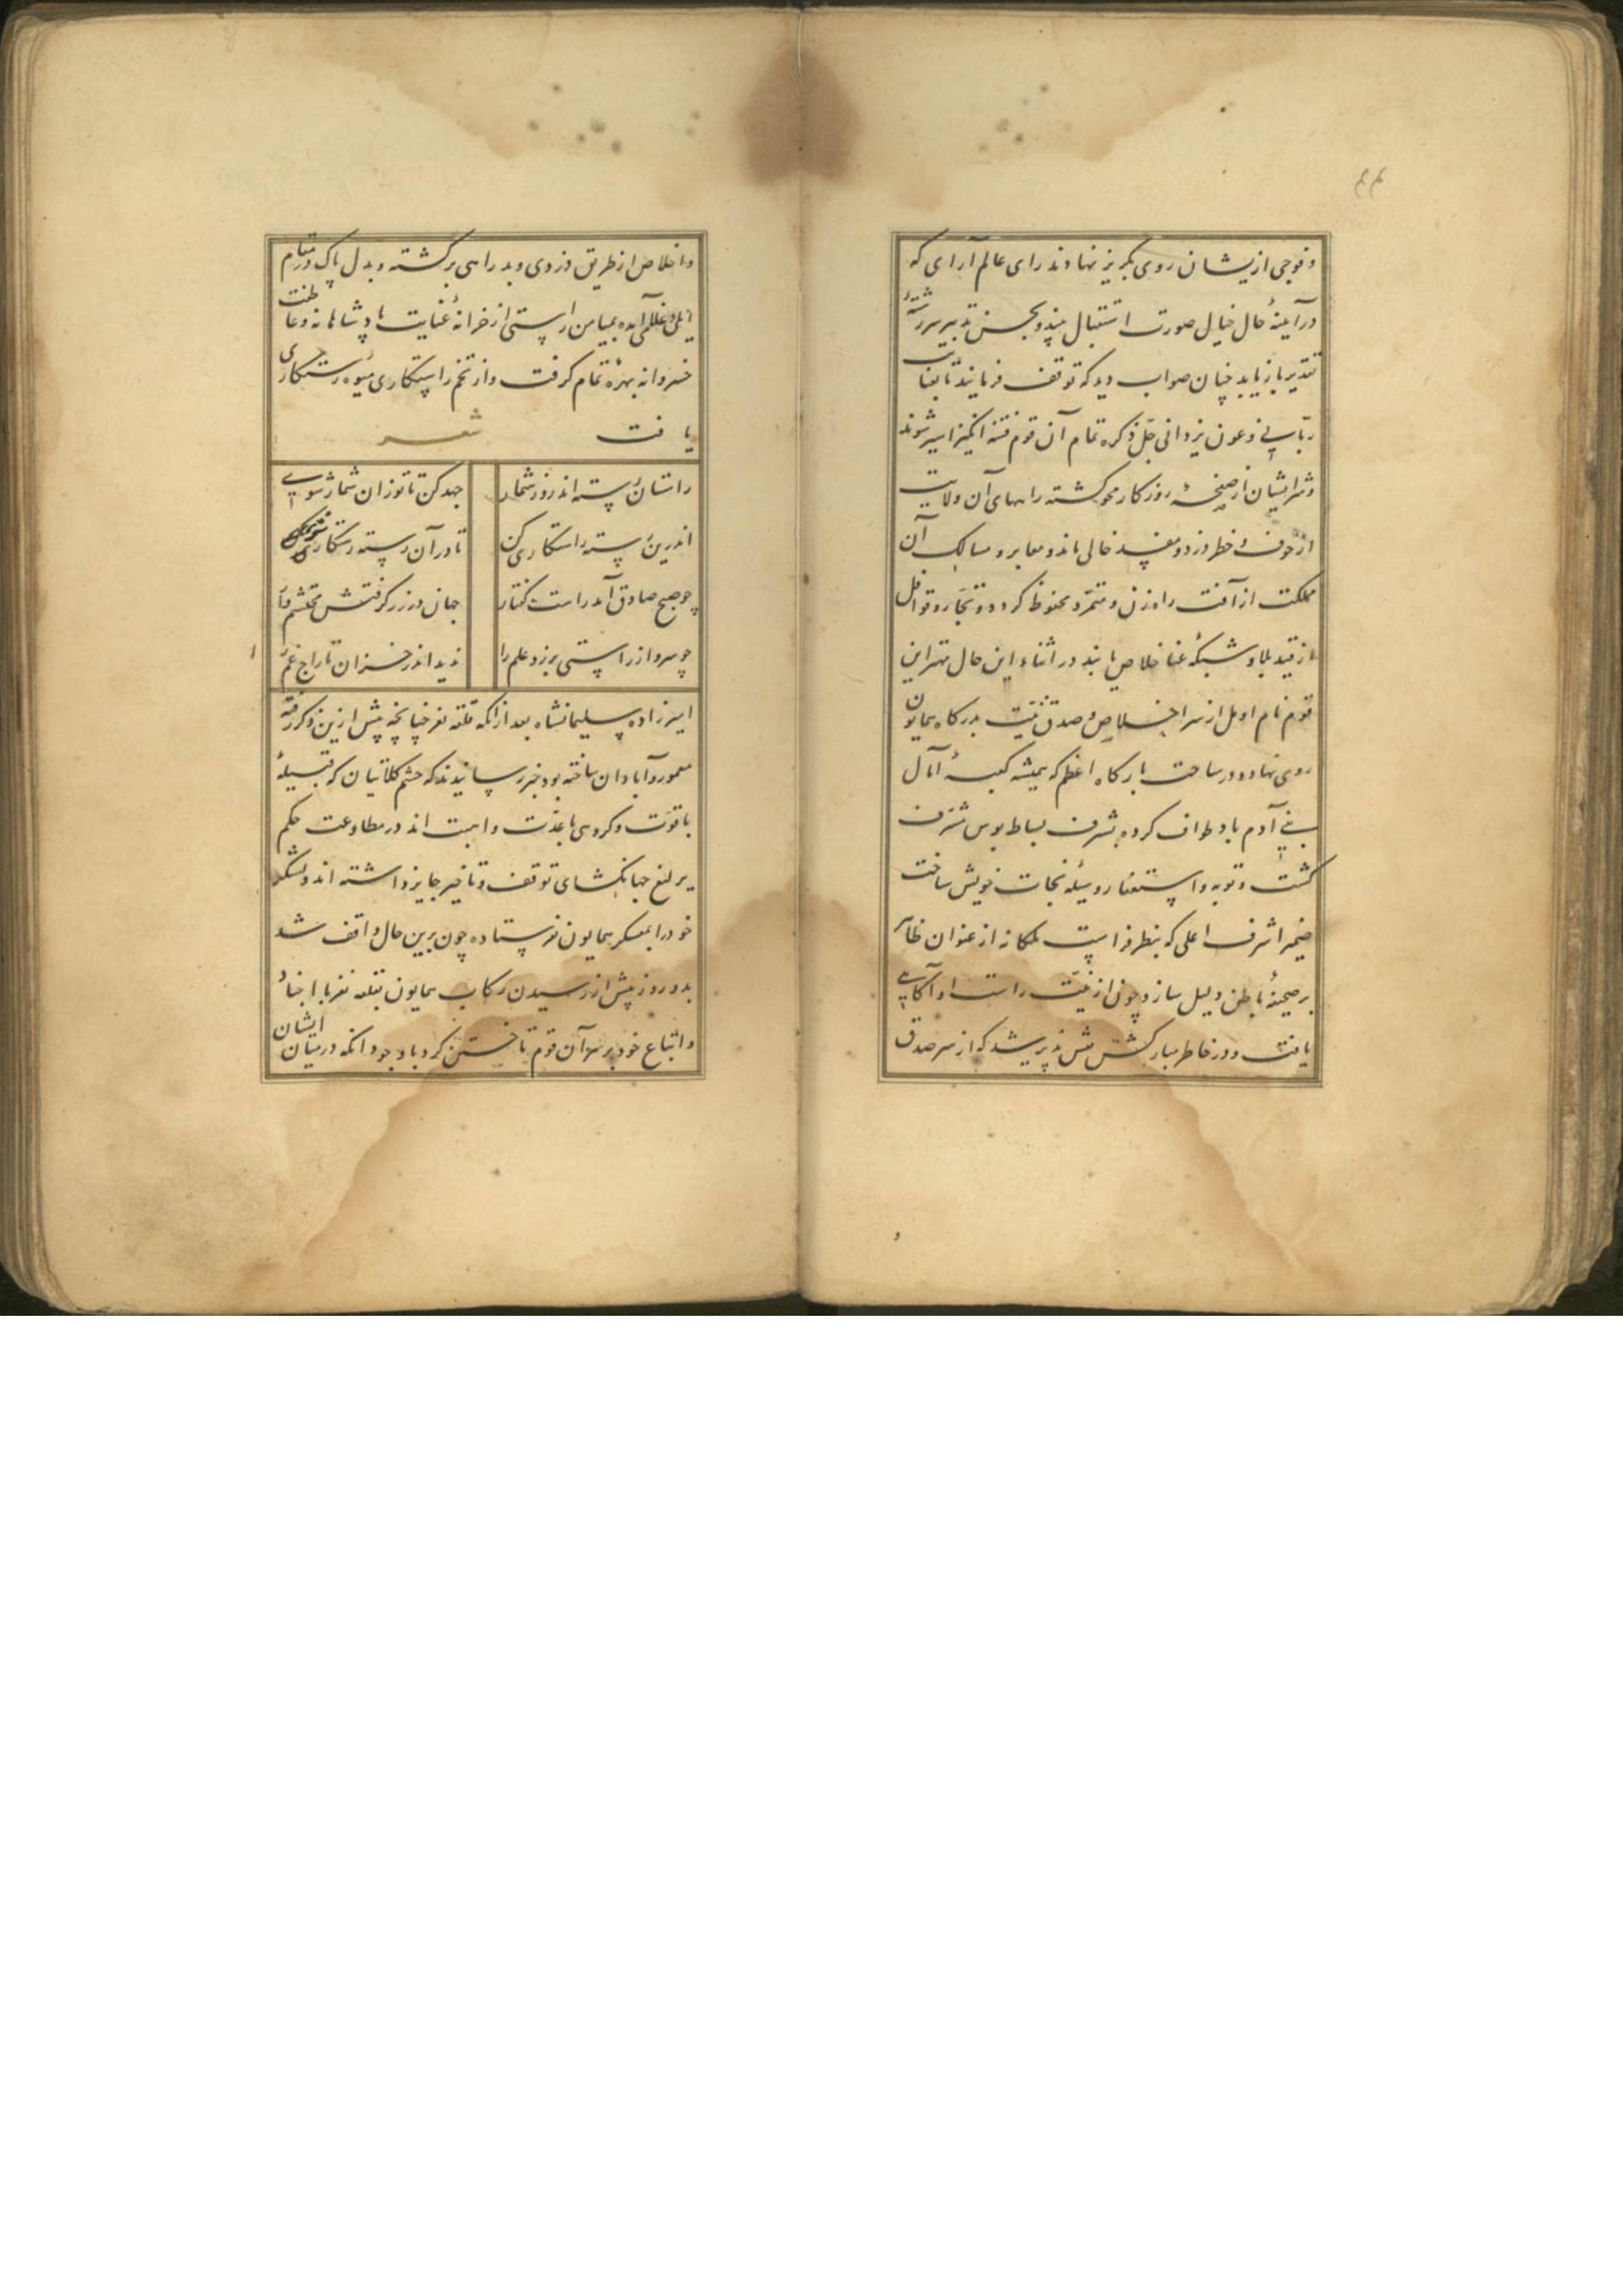 ۴۴
و فوجی ازیشان روی بکریز نهادند رای عالم آرای که
در آینهٔ حال خیال صورت استقبال بیند و بحسن تدبیر سررشتهٔ
تقدیر بازیابد چنان صواب دید که توقف فرمایند تا بعنایت
ربّانی و عون یزدانی جلّ ذکره تمام آن قوم فتنه انکیز اسیر شوند
و شرّ ایشان از صفحهٔ روزکار محو کشته راههای آن ولایت
از خوف و خطر دزد و مفسد خالی ماند و معابر و مسالک آن
مملکت از آفت راه زن و متمرّد محفوظ کردد و تجّار و قوافل
از قید بلا و شبکهٔ عنا خلاص یابند در اثناء این حال مهتر این
قوم نام او مل از سر اخلاص و صدق نیّت بدرکاه همایون
روی نهاد و در ساحت بارکاه اعظم که همیشه کعبهٔ آمال
بنی آدم باد طواف کرده بشرف بساط بوس مشرّف
کشت و توبه و استغفار وسیلهٔ نجات خویش ساخت
ضمیر اشرف اعلی که بنظر فراست ملکانه از عنوان ظاهر
بر صحیفهٔ باطن دلیل سازد چون از نیّت راست او آکاهی
یافت و در خاطر مبارکش نقش پذیر شد که از سر صدق
و اخلاص از طریق دزدی و بد راهی برکشته و بدل پاک در مقام
ایلی و غللی آمده بمیامن راستی از خزانهٔ عنایت پادشاهانه و عاطفت
خسروانه بهرهٔ تمام کرفت و از تخم راستکاری میوهٔ رستکاری
یافت شعر
راستان رسته اند روز شمار جهد کن تا تو زان شمار شوی
اندرین رسته راستکاری کن تا در آن رسته رستکار شوی
چو صبح صادق آمد راست کفتار جهان در زر کرفتش محتشم وار
چو سرو از راستی برزد علم را ندید اندر خزان تاراج غم را
امیرزاده سلیمانشاه بعد از انکه قلعه نغر چنانچه پیش ازین ذکر رفته
معمور و آبادان ساخته بود خبر رسانیدند که حشم کلاتیان که قبیلهٔ
باقوّت و کروهی با عدّت و اهبت اند در مطاوعت حکم
یرلیغ جهانکشای توقف و تاخیر جایز داشته اند و لشکر
خود را بمعسکر همایون نفرستاده چون برین حال واقف شد
بدو روز پیش از رسیدن رکاب همایون بقلعه نغر با اجناد
و اتباع خود بر سر آن قوم تاختن کرد با وجود انکه در میان ایشان